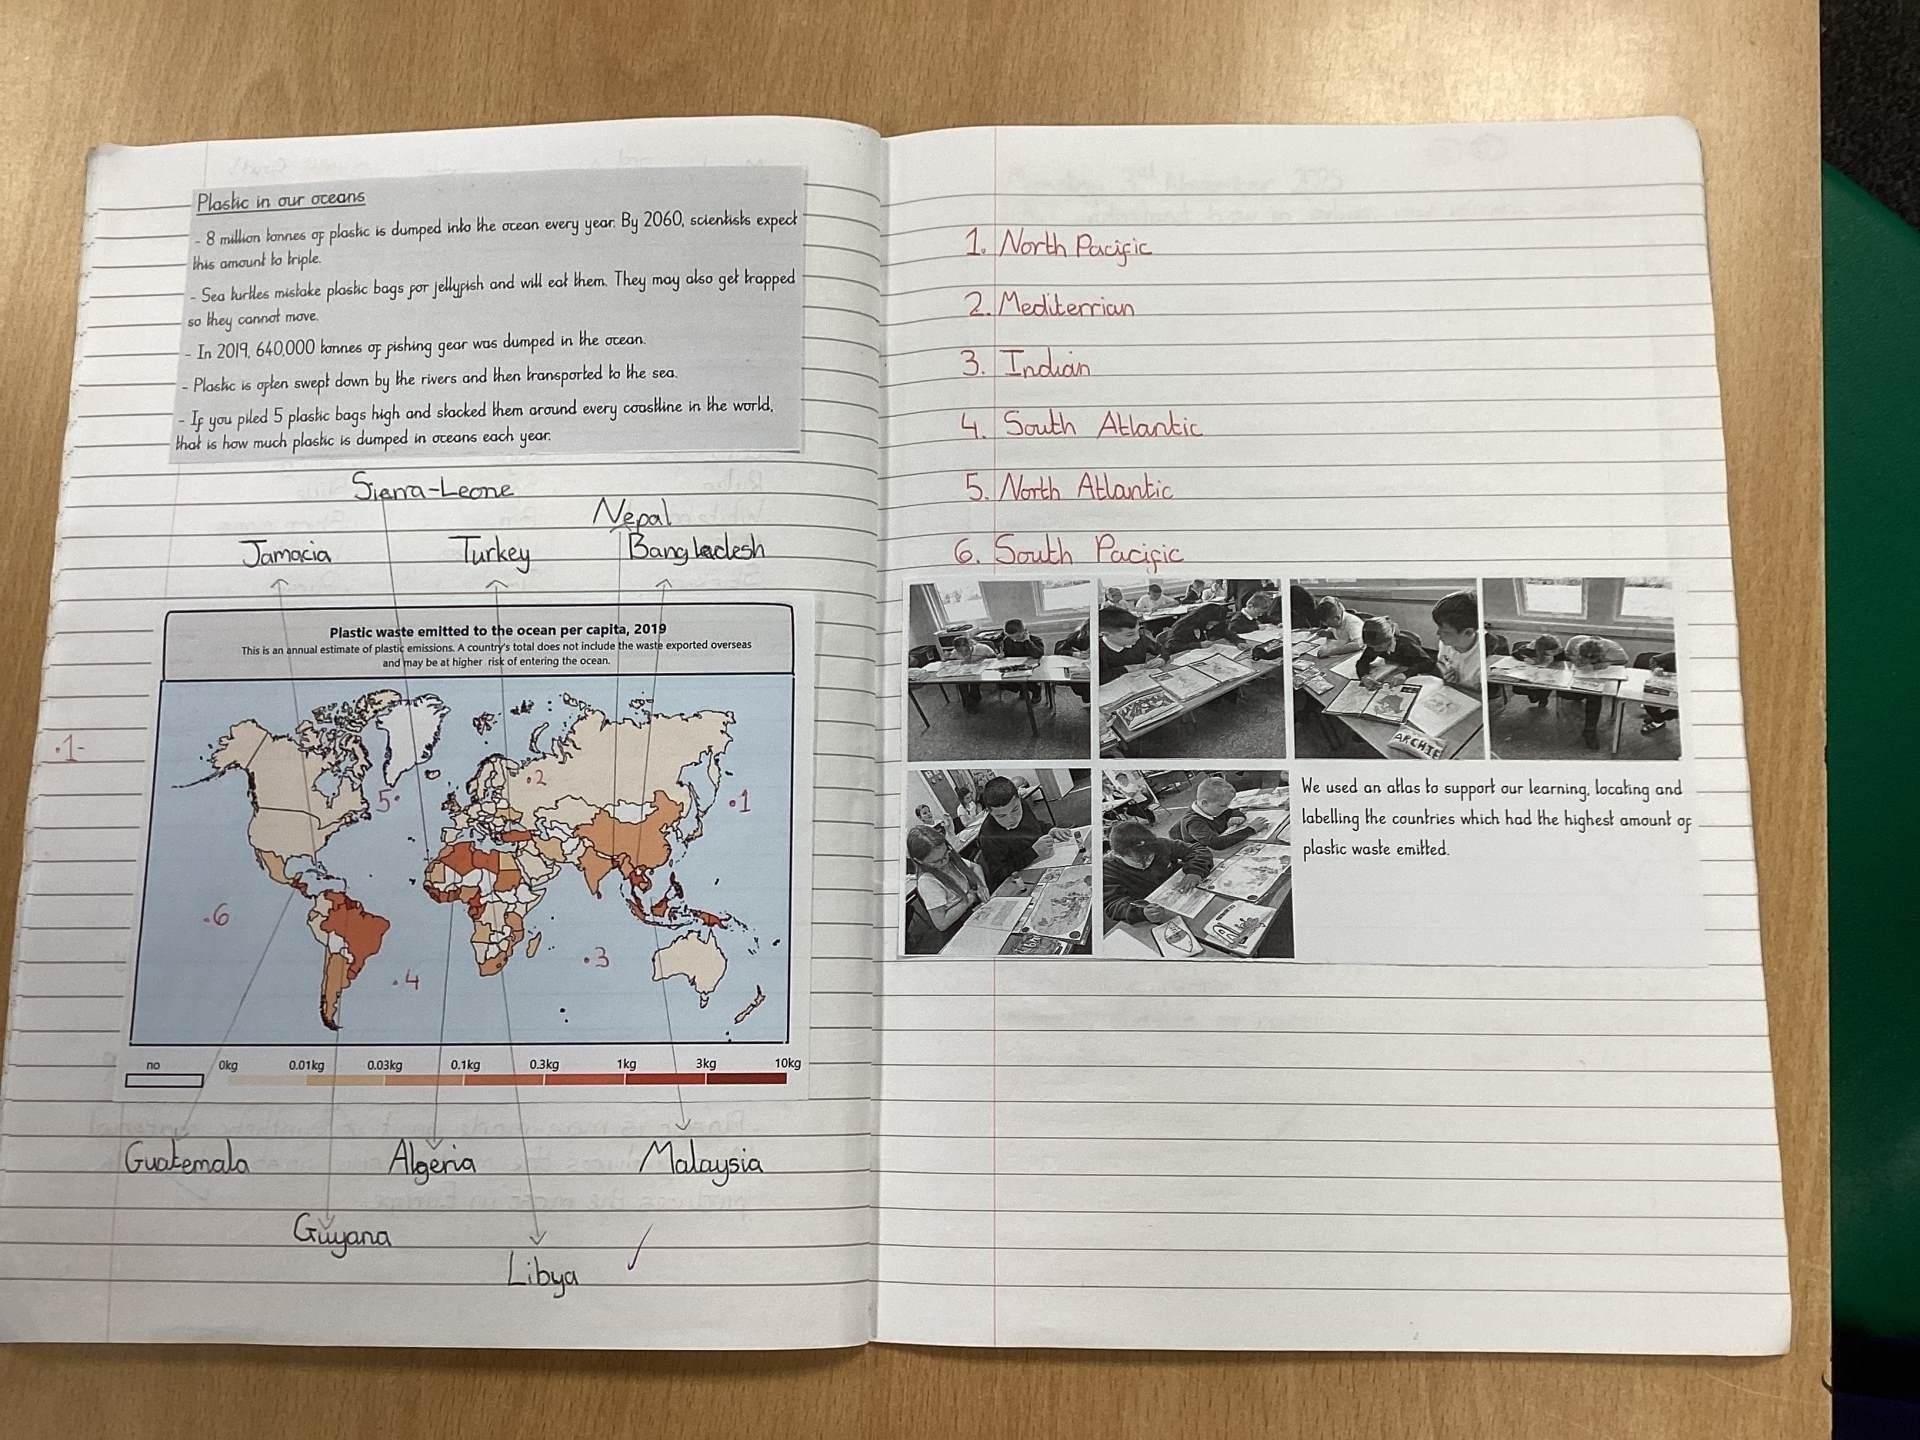 Plastic in our oceans
- 8 million tonnes of plastic is dumped into the ocean every year. By 2060, scientists expect
this amount to triple.
- Sea turtles mistake plastic bags for jellyfish and will eat them. They may also get trapped
so they cannot move.
- In 2019, 640,000 tonnes of fishing gear was dumped in the ocean.
- Plastic is often swept down by the rivers and then transported to the sea.
- If you piled 5 plastic bags high and stacked them around every coastline in the world,
that is how much plastic is dumped in oceans each year.
Sierra-Leone
Nepal
Jamacia Turkey Bangladesh
Plastic waste emitted to the ocean per capita, 2019
This is an annual estimate of plastic emissions. A country's total does not include the waste exported overseas
and may be at higher risk of entering the ocean.
.1-
.2
5.
.1
.6
.3
.4
no 0kg 0.01kg 0.03kg 0.1kg 0.3kg 1kg 3kg 10kg
Guatemala Algeria Malaysia
Guyana
Libya
1. North Pacific
2. Mediterrian
3. Indian
4. South Atlantic
5. North Atlantic
6. South Pacific
ARCHIE
We used an atlas to support our learning, locating and
labelling the countries which had the highest amount of
plastic waste emitted.